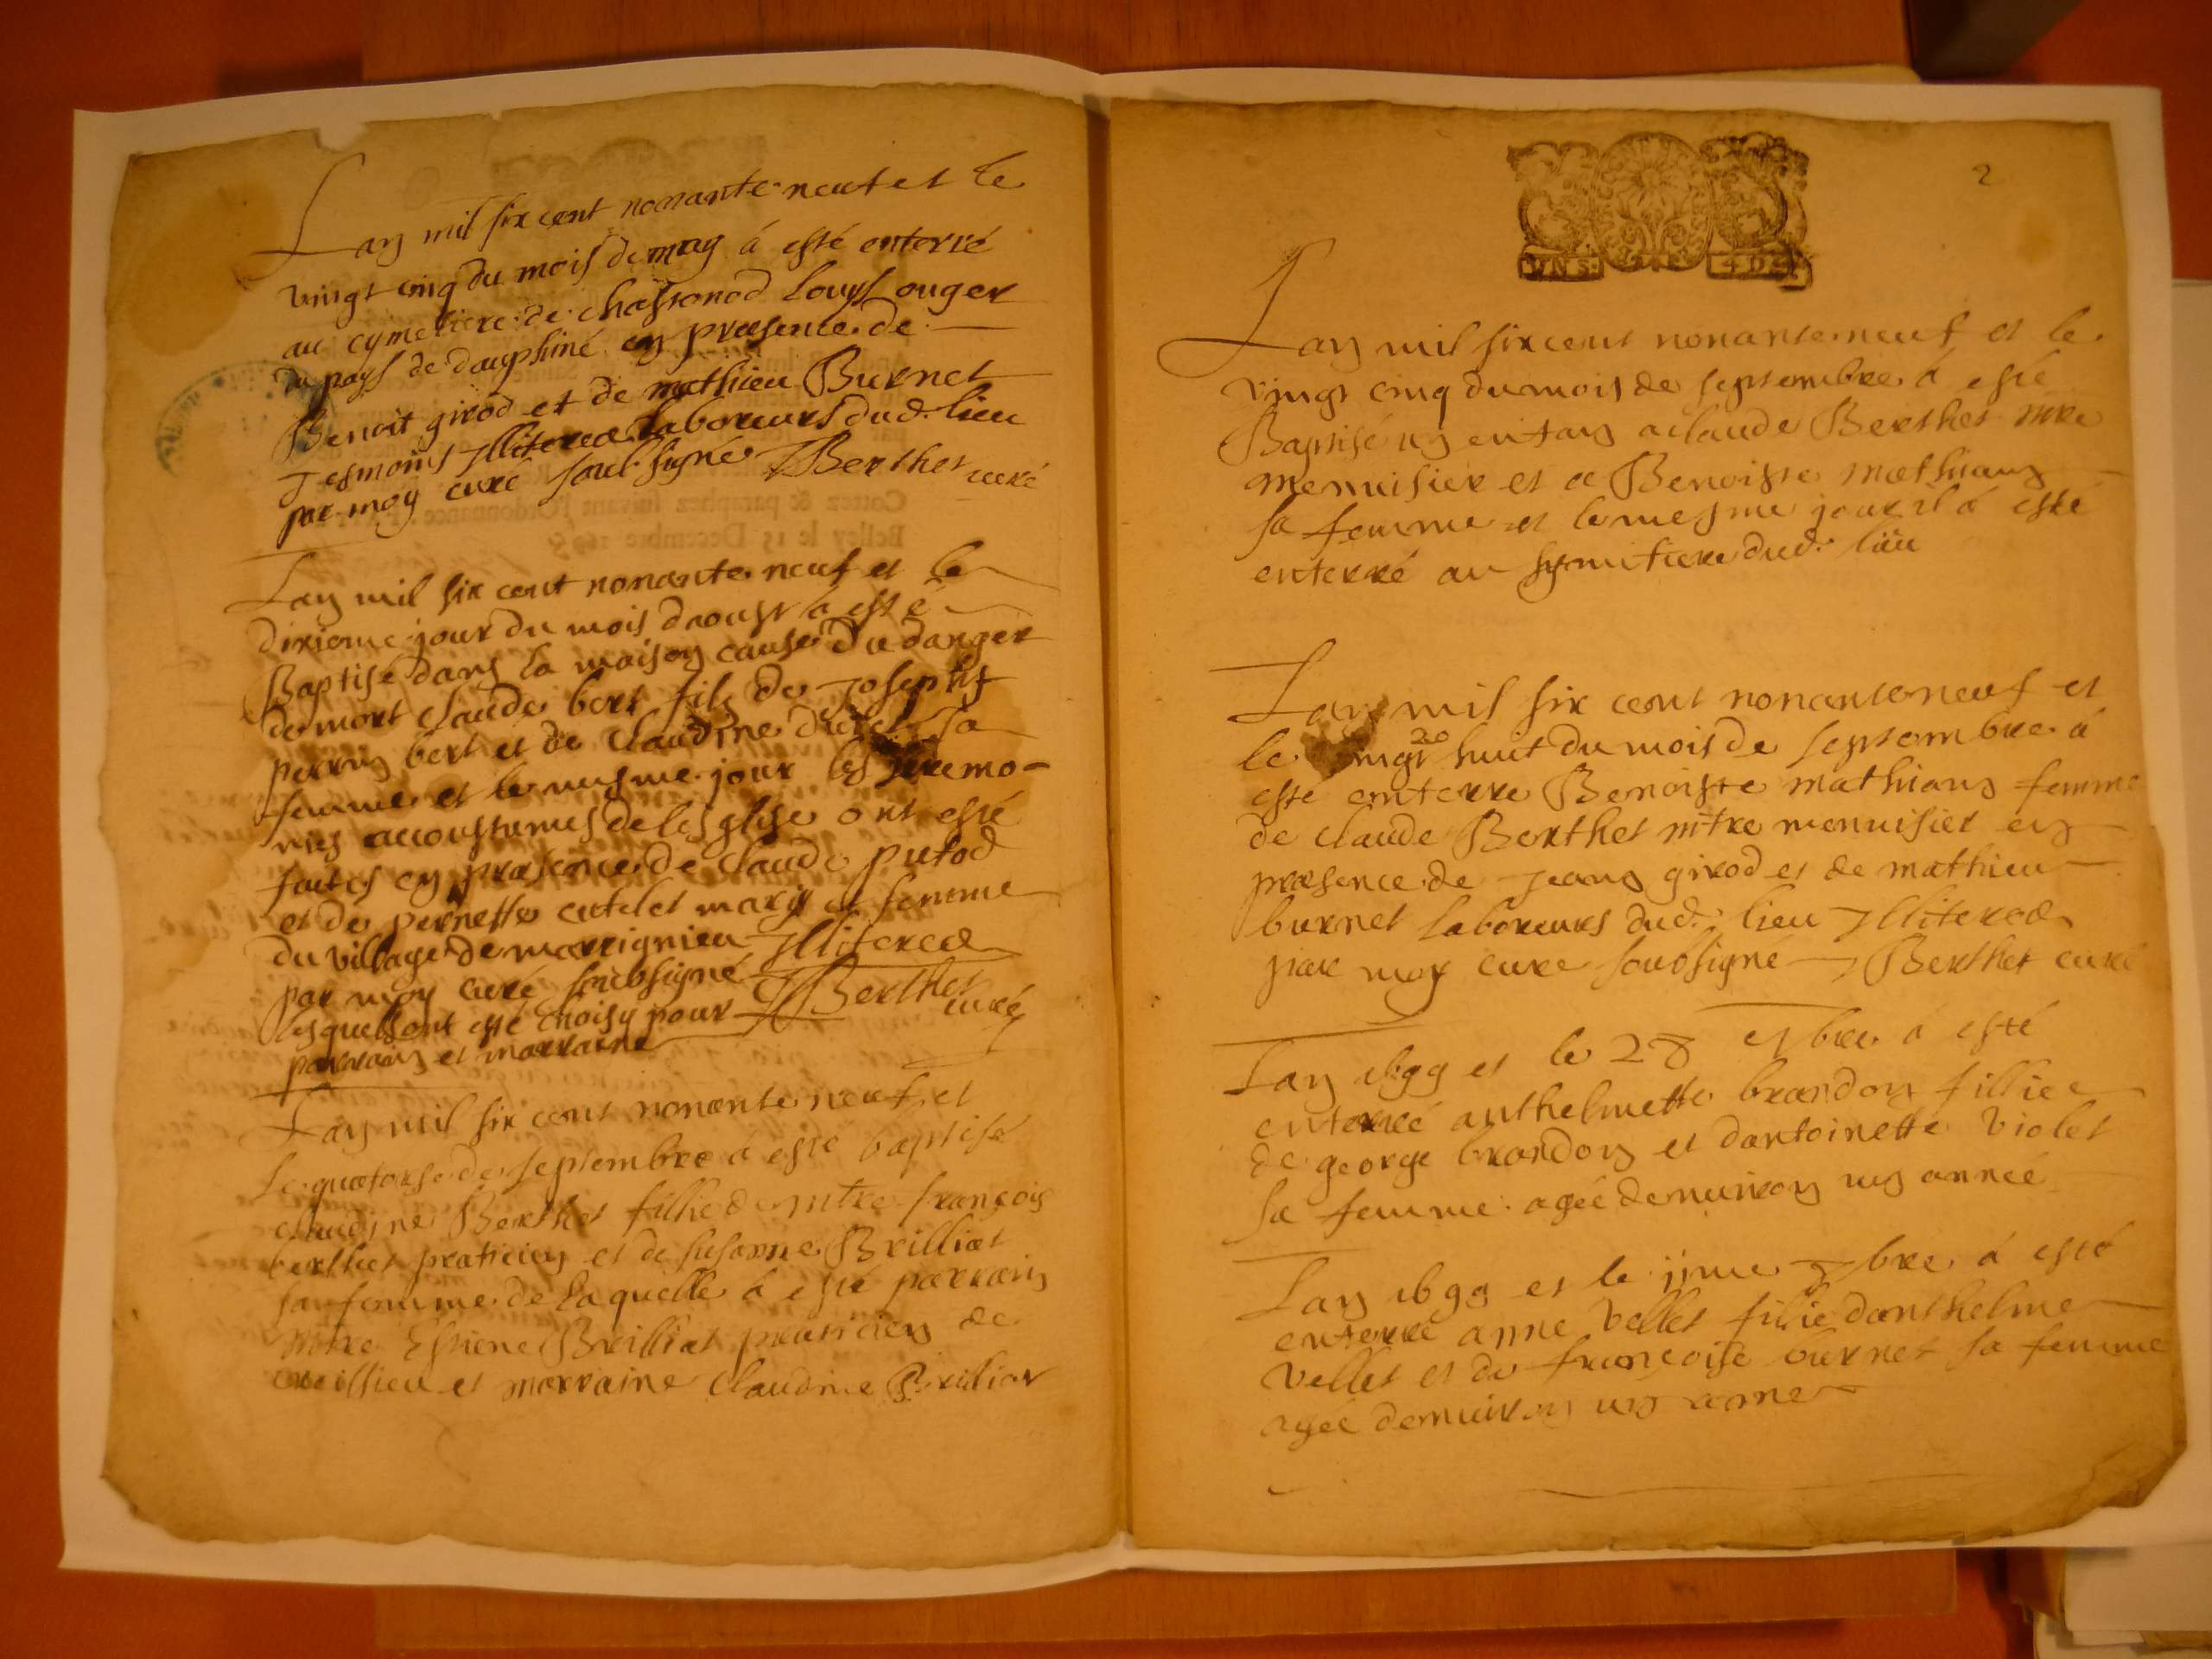 Lan mil six cent nonante neuf et le
vingt cinq du mois de may á esté enterré
au cymetiere de chassonod Louys ouger
du pays de dauphiné en præsence de
Benoit girod et de mathieu Burnet
Tesmoins Illiteræ laboreurs dud. lieu
par moy curé soubsigné Berthet curé
Cottez & paraphez suivant l'Ordonnance
Belley le 15 Decembre
Lan mil six cent nonante neuf et le
dixieme jour du mois daoust à esté
Baptisé dans la maison cause du danger
de mort claude bert fils de Joseph
perrin bert et de claudine sa
femme et le mesme jour les seremo-
nies accoustumés de lesglise ont esté
faites en præsence de claude putod
et de pernette catelet mary et femme
du village de marrignieu Illiteræ
par moy curé soubsigné Berthet
curé
lesquels ont esté choisy pour
parrain et marraine
Lan mil six cent nonante neuf et
le quatorse de septembre á esté baptisé
claudine Berthet fillie de mtre françois
berthet praticien et de susanne Brilliat
sa femme de laquelle á esté parrain
mtre Estiene Brilliat praticien de
et marraine claudine Brilliat
2
4 D
Lan mil six cent nonante neuf et le
vingt cinq du mois de septembre á esté
Baptisé un enfan a claude Berthet mre
menuisier et a Benoiste mathian
sa femme et le mesme jour il á esté
enterré au symitiere dud. lieu
Lan mil six cent nonante neuf et
le vingt 20 huit du mois de septembre á
esté enterre Benoiste mathian femme
de claude Berthet mtre menuisier en
præsence de Jean girod et de mathieu
burnet laboreurs dud. lieu Illiteræ
par moy cure soubsigné Berthet curé
Lan 1699 et le 28 bre á esté
enterreé anthelmette brandon fillie
de george brandon et dantoinette violet
sa femme agée denuiron un année
Lan 1699 et le jjme bre á esté
enterré anne vellet fillie danthelme
vellet et de françoise burnet sa femme
agée denuiron un anne